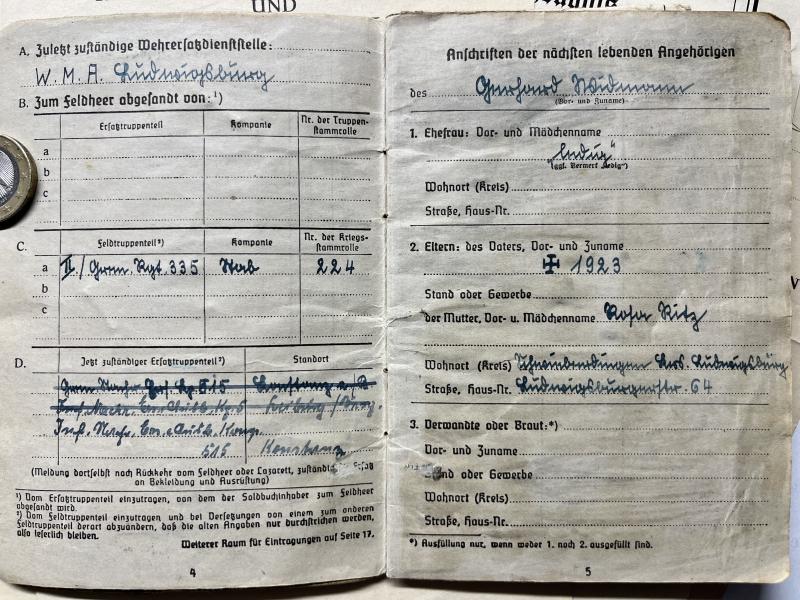 UND
A. Zuletzt zuständige Wehrersatzdienststelle:
W. M. A. Ludwigsburg
B. Zum Feldheer abgesandt von: ¹)
Ersatztruppenteil
Kompanie
Nr. der Truppen-
stammrolle
a
b
c
C.
Feldtruppenteil ²)
Kompanie
Nr. der Kriegs-
stammrolle
a II./Gren. Rgt. 335 Stab 224
b
c
D.
Jetzt zuständiger Ersatztruppenteil ²)
Standort
Gren. Nachr. Ers. Kp. 515 Konstanz a/B
Inf. Nachr. Ers. u. Ausb. Kp. 5
Inf. Nachr. Ers. u. Ausb. Komp.
515 Konstanz
(Meldung dortselbst nach Rückkehr vom Feldheer oder Lazarett, zuständig
an Bekleidung und Ausrüstung)
¹) Vom Ersatztruppenteil einzutragen, von dem der Soldbuchinhaber zum Feldheer
abgesandt wird.
²) Vom Feldtruppenteil einzutragen und bei Versetzungen von einem zum anderen
Feldtruppenteil derart abzuändern, daß die alten Angaben nur durchstrichen werden,
also leserlich bleiben.
Weiterer Raum für Eintragungen auf Seite 17.
4
Anschriften der nächsten lebenden Angehörigen
des Gerhard Widmann
(Vor- und Zuname)
1. Ehefrau: Vor- und Mädchenname
„ledig“
(ggf. Vermerk „ledig“)
Wohnort (Kreis)
Straße, Haus-Nr.
2. Eltern: des Vaters, Vor- und Zuname
1923
Stand oder Gewerbe
der Mutter, Vor- u. Mädchenname Rosa Ritz
Wohnort (Kreis) Schwieberdingen Krs. Ludwigsburg
Straße, Haus-Nr. Ludwigsburgerstr. 64
3. Verwandte oder Braut: *)
Vor- und Zuname
Stand oder Gewerbe
Wohnort (Kreis)
Straße, Haus-Nr.
*) Ausfüllung nur, wenn weder 1. noch 2. ausgefüllt sind.
5